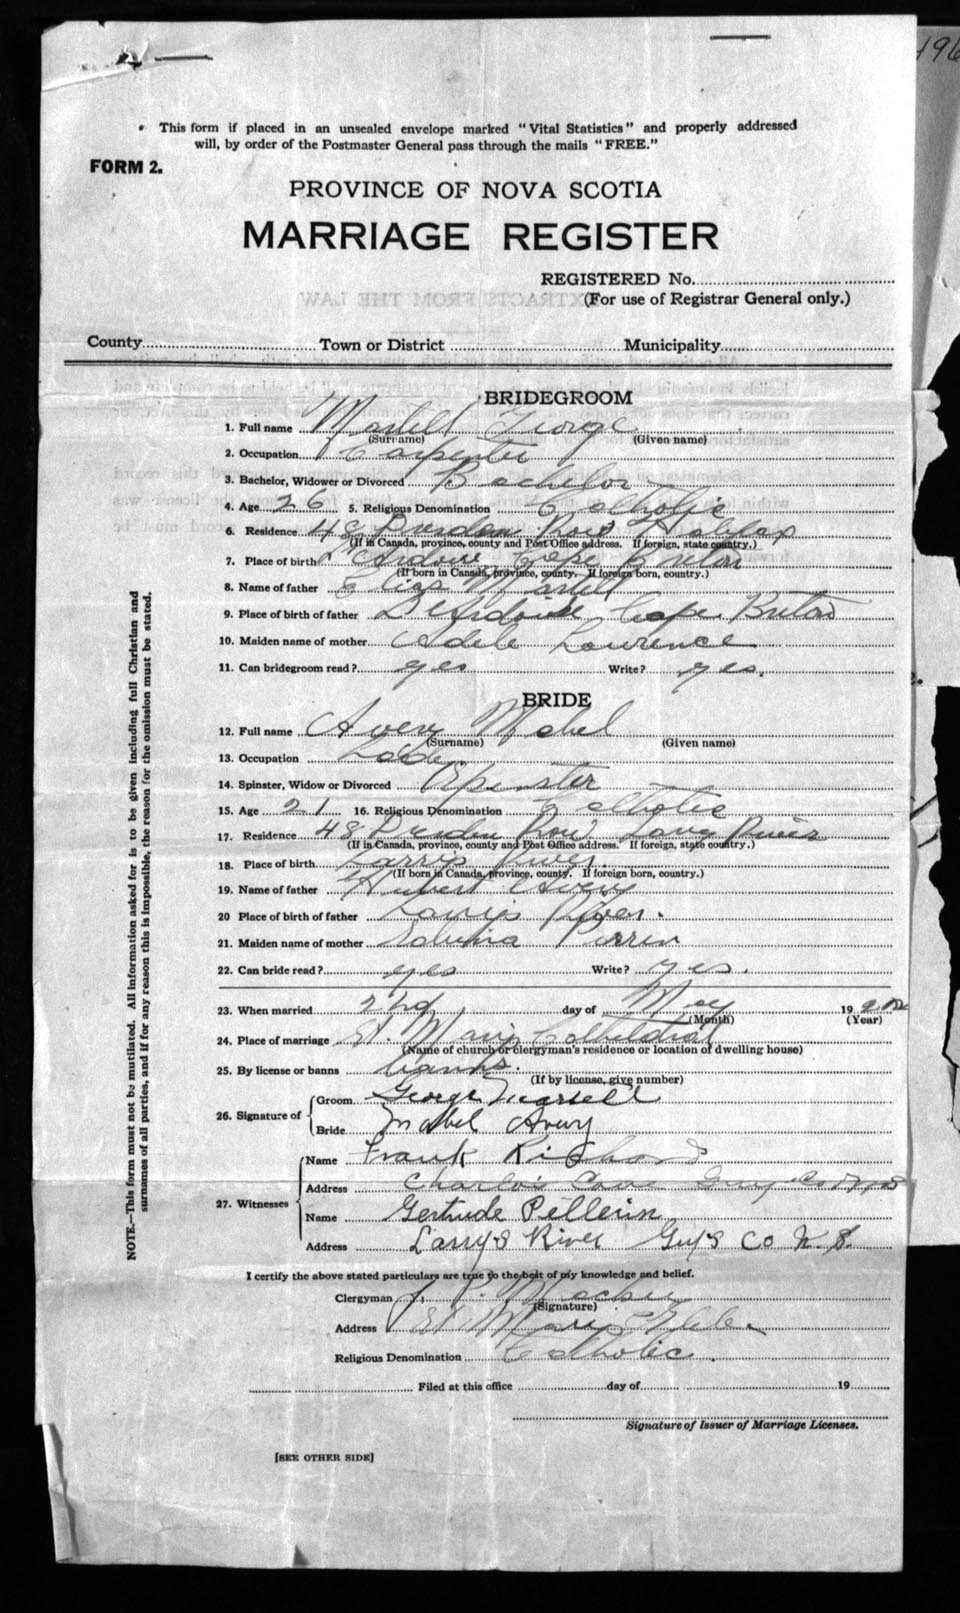 196
This form if placed in an unsealed envelope marked "Vital Statistics" and properly addressed
will, by order of the Postmaster General pass through the mails "FREE."
FORM 2.
PROVINCE OF NOVA SCOTIA
MARRIAGE REGISTER
REGISTERED No.
(For use of Registrar General only.)
EXTRACTS FROM THE LAW
County Town or District Municipality
BRIDEGROOM
1. Full name Martell George
(Surname) (Given name)
2. Occupation Carpenter
3. Bachelor, Widower or Divorced Bachelor
4. Age 26 5. Religious Denomination Catholic
6. Residence 48 Dresden Row Halifax
(If in Canada, province, county and Post Office address. If foreign, state country.)
7. Place of birth L'Ardoise Cape Breton
(If born in Canada, province, county. If foreign born, country.)
8. Name of father Elias Martell
9. Place of birth of father L'Ardoise Cape Breton
10. Maiden name of mother Adele Lawrence
11. Can bridegroom read? yes Write? yes.
BRIDE
12. Full name Avery Mabel
(Surname) (Given name)
13. Occupation Lady
14. Spinster, Widow or Divorced Spinster
15. Age 21 16. Religious Denomination Catholic
17. Residence 48 Dresden Row Larrys River
(If in Canada, province, county and Post Office address. If foreign, state country.)
18. Place of birth Larrys River.
(If born in Canada, province, county. If foreign born, country.)
19. Name of father Hubert Avery
20 Place of birth of father Larrys River.
21. Maiden name of mother
22. Can bride read? yes Write? yes.
23. When married 2nd day of May 19
(Month) (Year)
24. Place of marriage St. Marys Cathedral
(Name of church or clergyman's residence or location of dwelling house)
25. By license or banns banns.
(If by license, give number)
26. Signature of Groom George Martell
Bride Mabel Avery
27. Witnesses Name Frank Richard
Address Charlo's Cove Guy. Co N.S
Name Gertrude Pellerin
Address Larry's River Guy's Co N. S.
I certify the above stated particulars are true to the best of my knowledge and belief.
Clergyman J. P.
(Signature)
Address St Marys Glebe
Religious Denomination Catholic.
Filed at this office day of 19
Signature of Issuer of Marriage Licenses.
[SEE OTHER SIDE]
NOTE.—This form must not be mutilated. All information asked for is to be given including full Christian and
surnames of all parties, and if for any reason this is impossible, the reason for the omission must be stated.